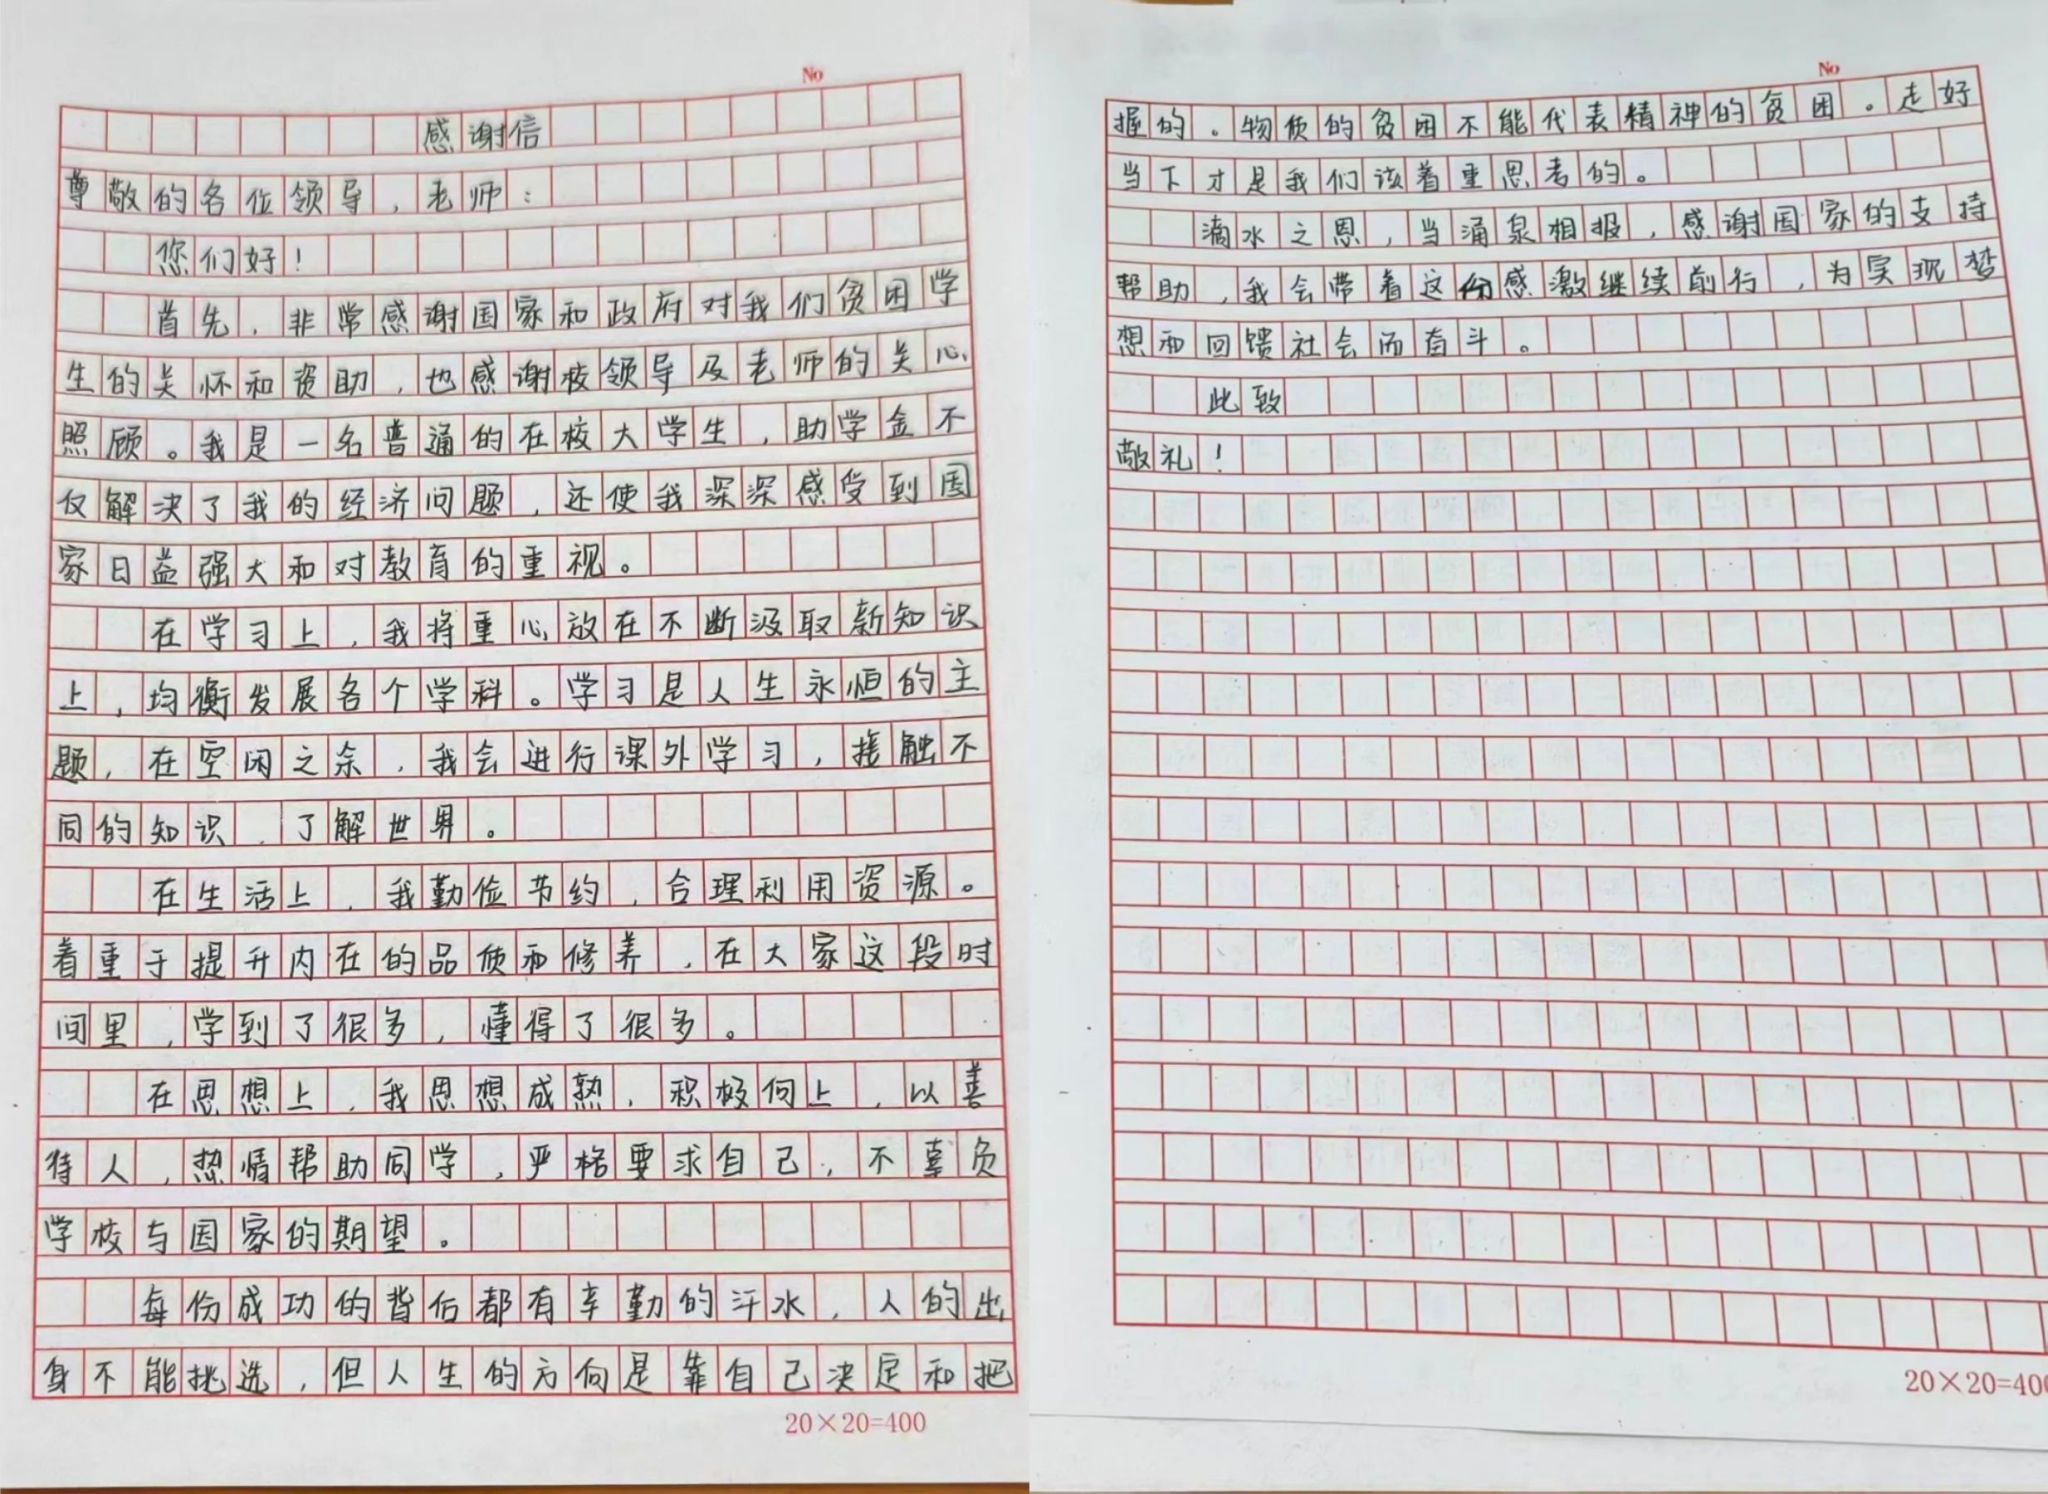 No
感谢信
尊敬的各位领导，老师：
您们好！
首先，非常感谢国家和政府对我们贫困学
生的关怀和资助，也感谢校领导及老师的关心
照顾。我是一名普通的在校大学生，助学金不
仅解决了我的经济问题，还使我深深感受到国
家日益强大和对教育的重视。
在学习上，我将重心放在不断汲取新知识
上，均衡发展各个学科。学习是人生永恒的主
题，在空闲之余，我会进行课外学习，接触不
同的知识，了解世界。
在生活上，我勤俭节约，合理利用资源。
着重于提升内在的品质和修养，在大家这段时
间里，学到了很多，懂得了很多。
在思想上，我思想成熟，积极向上，以善
待人，热情帮助同学，严格要求自己，不辜负
学校与国家的期望。
每份成功的背后都有辛勤的汗水，人的出
身不能挑选，但人生的方向是靠自己决定和把
20×20=400
No
握的。物质的贫困不能代表精神的贫困。走好
当下才是我们该着重思考的。
滴水之恩，当涌泉相报，感谢国家的支持
帮助，我会带着这份感激继续前行，为实现梦
想和回馈社会而奋斗。
此致
敬礼！
20×20=400